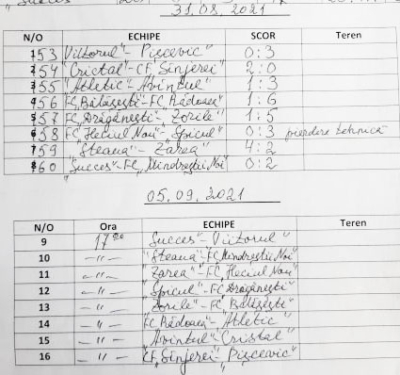 31.08.2021
N/O ECHIPE SCOR Teren
53 Viitorul" - Pișcevic" 0:3
54 Cristal" - CF Sînjerei" 2:0
55 "Athletic" - Avîntul" 1:3
56 FC Bălășești - FC Rădoaia" 1:6
57 FC Drăgănești - Zorile" 1:5
58 FC Heciul Nou" - Spicul" 0:3 pierdere tehnică
59 "Steaua" - Zarea" 4:2
60 "Succes" - FC Mîndreștii Noi" 0:2
05.09.2021
N/O Ora ECHIPE Teren
9 17⁰⁰ Succes" - Viitorul"
10 —"— "Steaua" - FC Mîndreștii Noi"
11 —"— "Zarea" - FC Heciul Nou"
12 —"— "Spicul" - FC Drăgănești"
13 —"— Zorile" - FC Bălășești"
14 —"— FC Rădoaia" - Athletic"
15 —"— "Avîntul" - Cristal"
16 —"— CF Sînjerei" - Pișcevic"